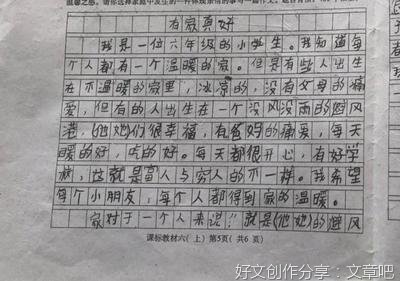 有家真好
我是一位六年级的小学生。我知道每
个人都有一个温暖的家。但是有些人出生
在不温暖的家里，冰凉的，没有父母的痛
爱，但有的人出生在一个没风没雨的避风
港，他她们很幸福，有爸妈的痛爱，每天
暖的好，吃的好。每天都很开心，有好学
校，这就是富人与穷人的不一样。我希望
每个小朋友，每个人都得到家的温暖。
家对于一个人来说！！就是(他她)的避风
课标教材六(上) 第5页(共6页)
好文创作分享：文章吧